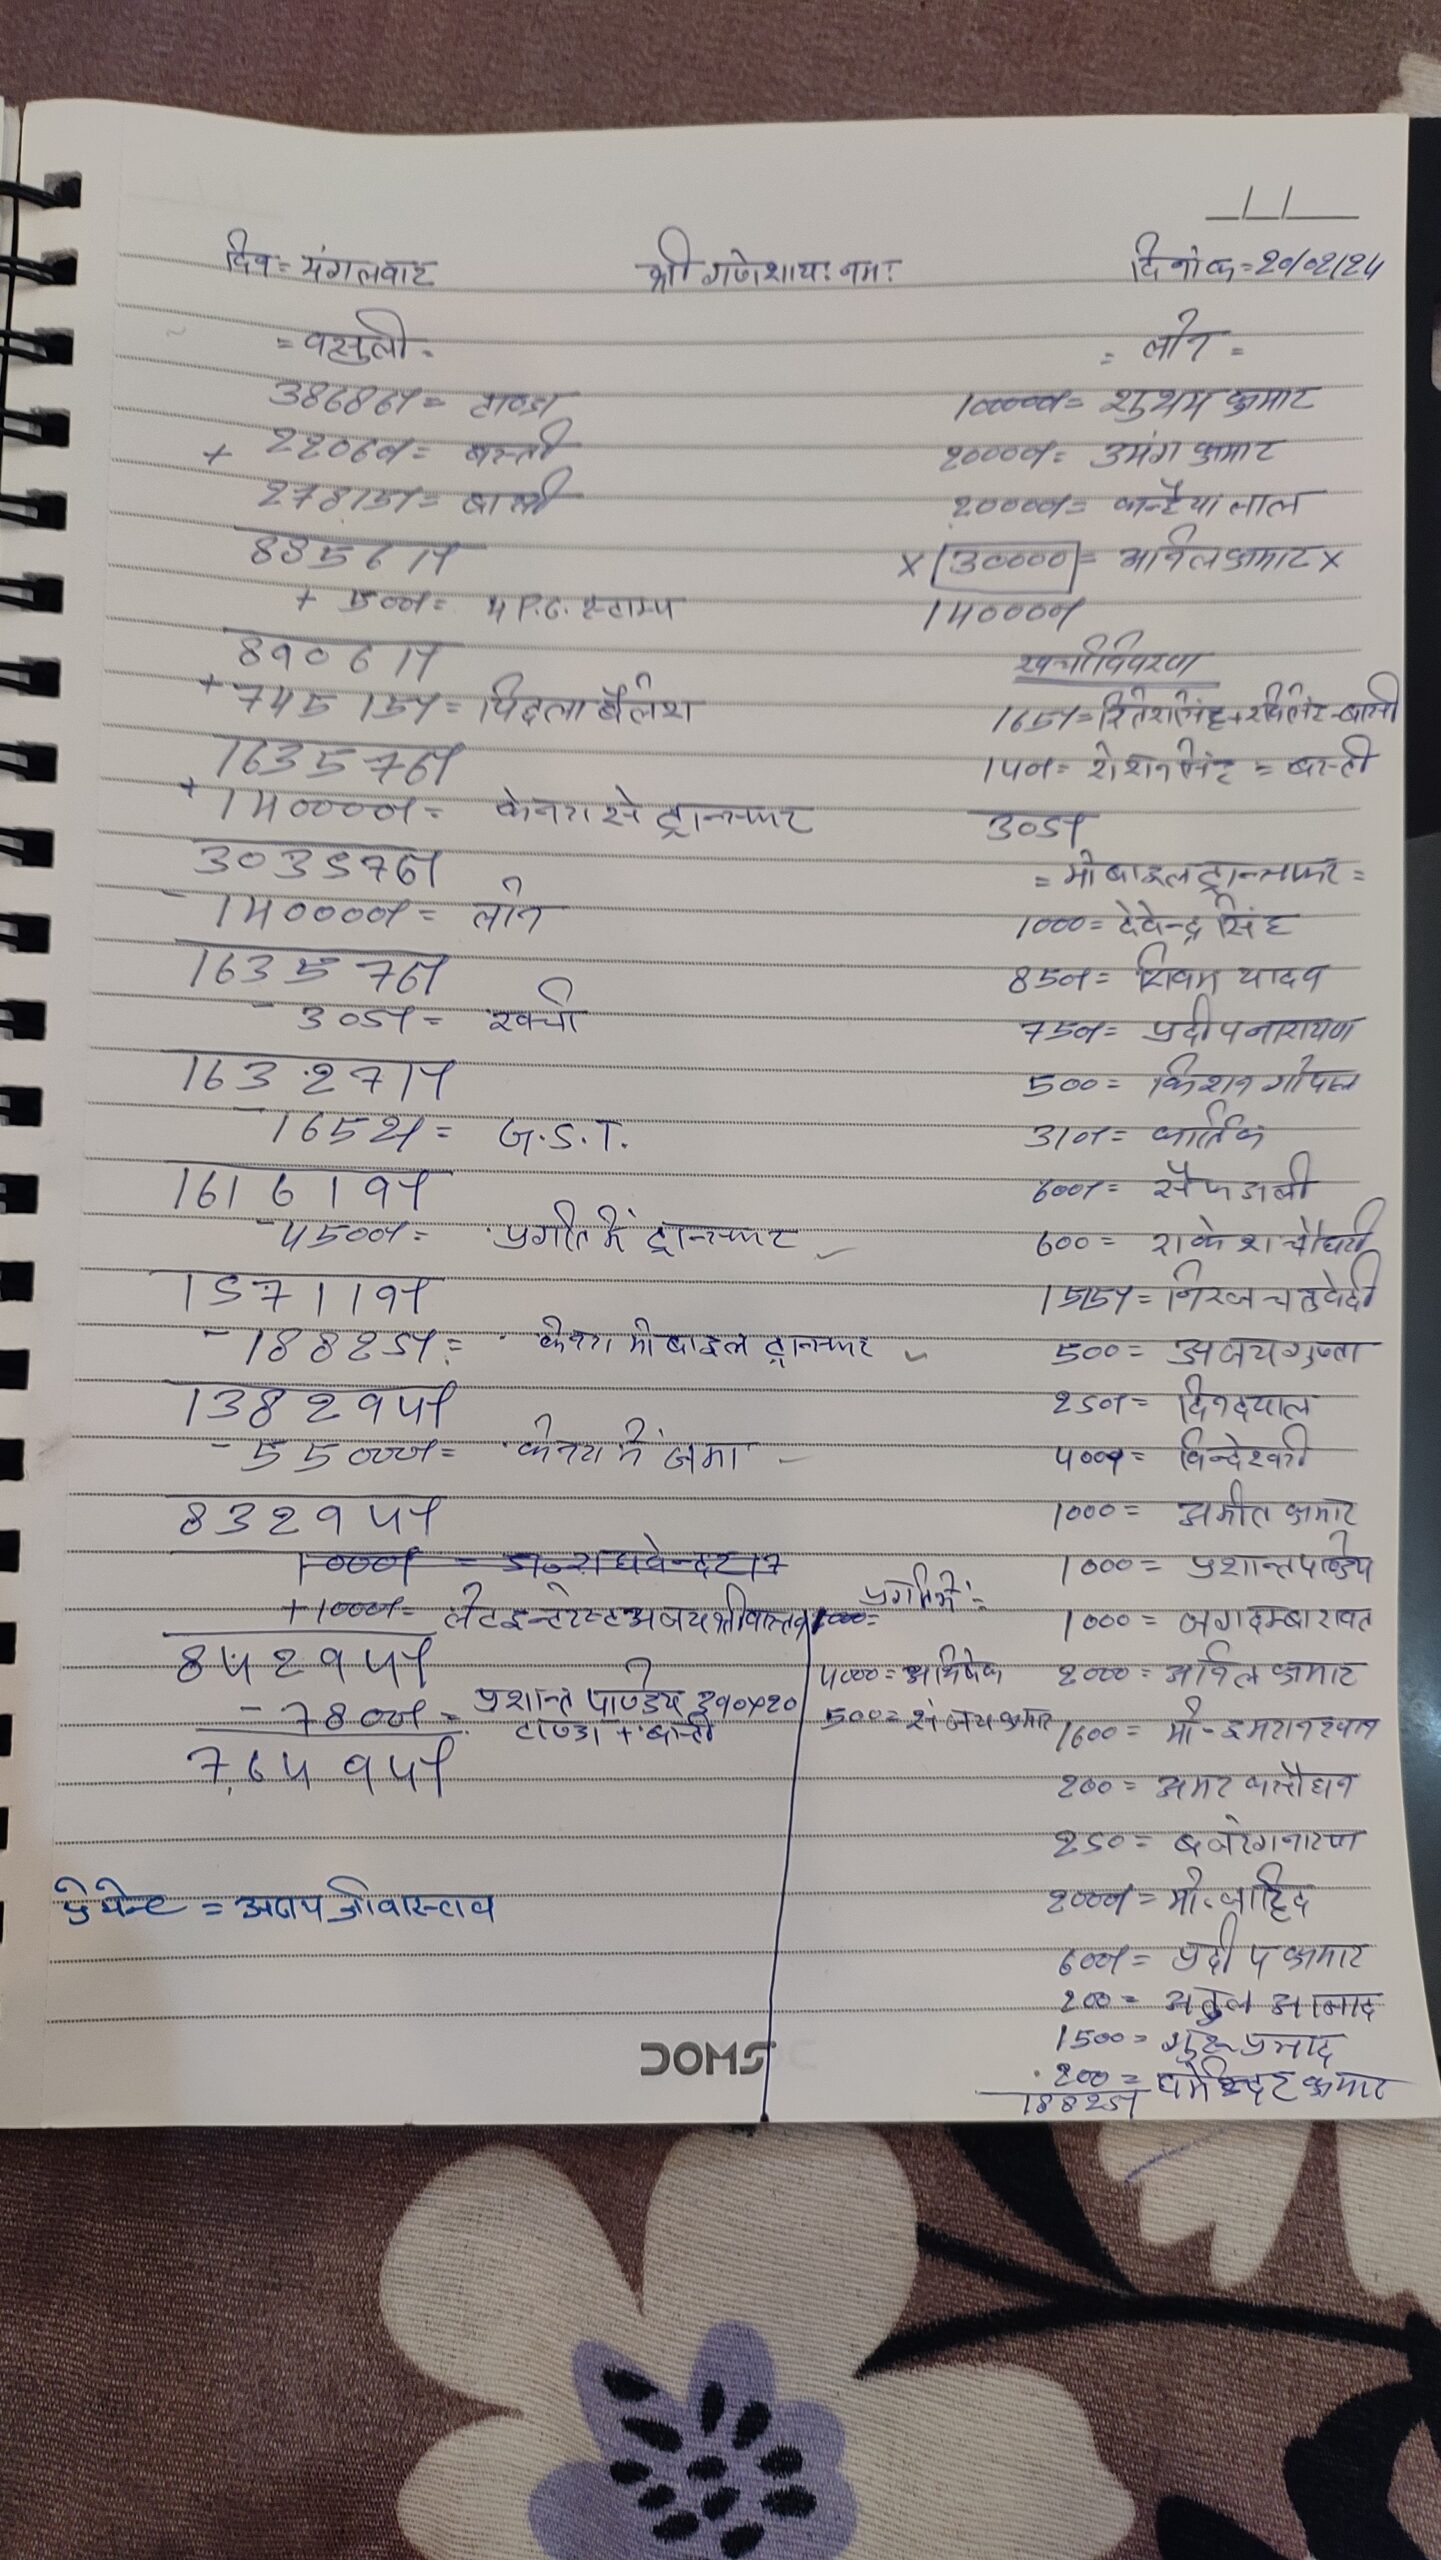 दिन= मंगलवार
श्री गणेशाय: नम:
दिनांक=20/02/24
= वसुली =
38686/= टाण्डा
+ 22060/= बस्ती
27815/= बासी
88561/
+ 500/= P.C. स्टाम्प
89061/
+ 74515/= पिछला बैलेंश
163576/
+ 140000/= केनरा से ट्रान्सफर
303576/
- 140000/= लोन
163576/
- 305/= खर्चा
163271/
- 1652/= G.S.T.
161619/
- 4500/= प्रगति में ट्रान्सफर
157119/
- 18825/= केनरा मोबाइल ट्रान्सफर
138294/
- 55000/= केनरा में जमा
83294/
1000/=
+ 1000/= लेट इन्टरेस्ट अजय श्रीवास्तव
84294/
- 7800/= प्रशान्त पाण्डेय 390×20
टाण्डा + बस्ती
76494/
पेमेन्ट = अजय श्रीवास्तव
प्रगति में =
4000= अभिषेक
500= संजय कुमार
= लोन =
100000/= शुभम कुमार
20000/= उमंग कुमार
20000/= कन्हैया लाल
× 30000 = अनिल कुमार ×
140000/
खर्चा विवरण
165/= रितेश सिंह + - बासी
140/= रोशन सिंह = बस्ती
305/
= मोबाइल ट्रान्सफर =
1000= देवेन्द्र सिंह
850/= शिवम यादव
750/= प्रदीप नारायण
500= किशन गोपाल
310/= कार्तिक
600/= सैफ अली
600= राकेश चौधरी
1515/= निरज चतुर्वेदी
500= अजय गुप्ता
250/= दिनदयाल
400/= विन्देश्वरी
1000= अमीत कुमार
1000= प्रशान्त पाण्डेय
1000= जगदम्बा रावत
2000= अनिल कुमार
1600= मो- इमरान खान
200= अमर कसौधन
250= बजरंग नारायण
2000/= मो. वाहिद
600/= प्रदीप कुमार
200= अतुल आनाद
1500= गुरू प्रसाद
200= धर्मेन्दर कुमार
18825/
DOMS